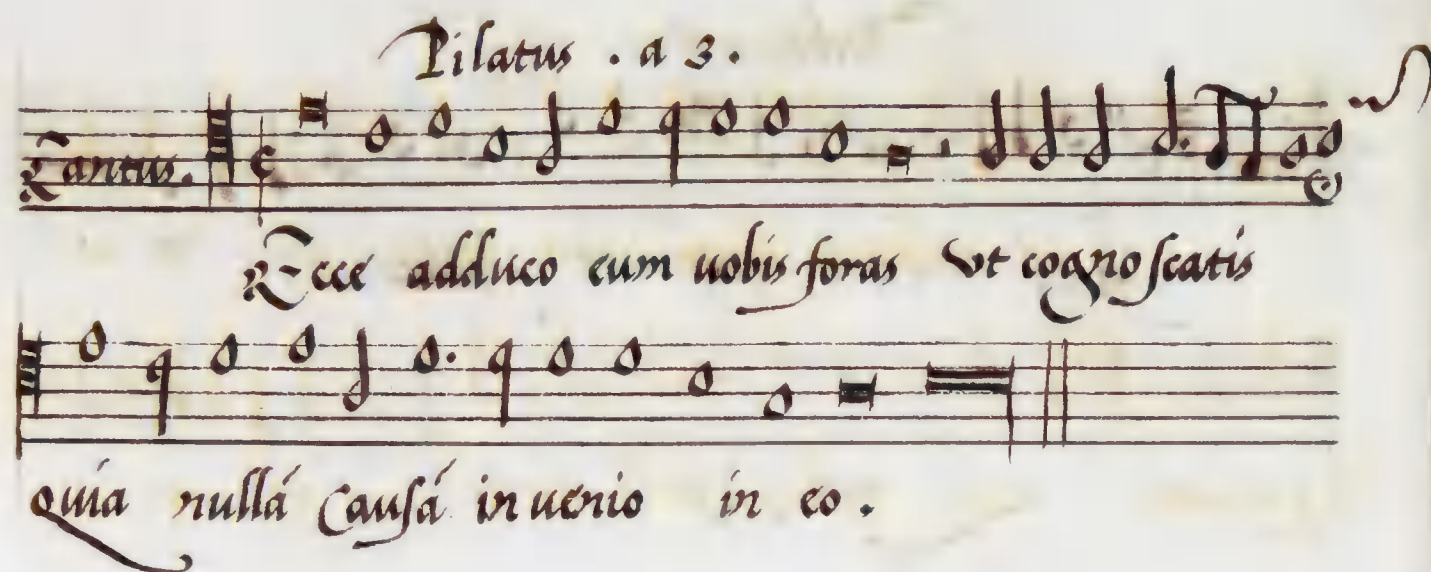 Pilatus . a 3 .
Cantus.
Ecce adduco eum uobis foras Vt cognoscatis
quia nullá Causá inuenio in eo .